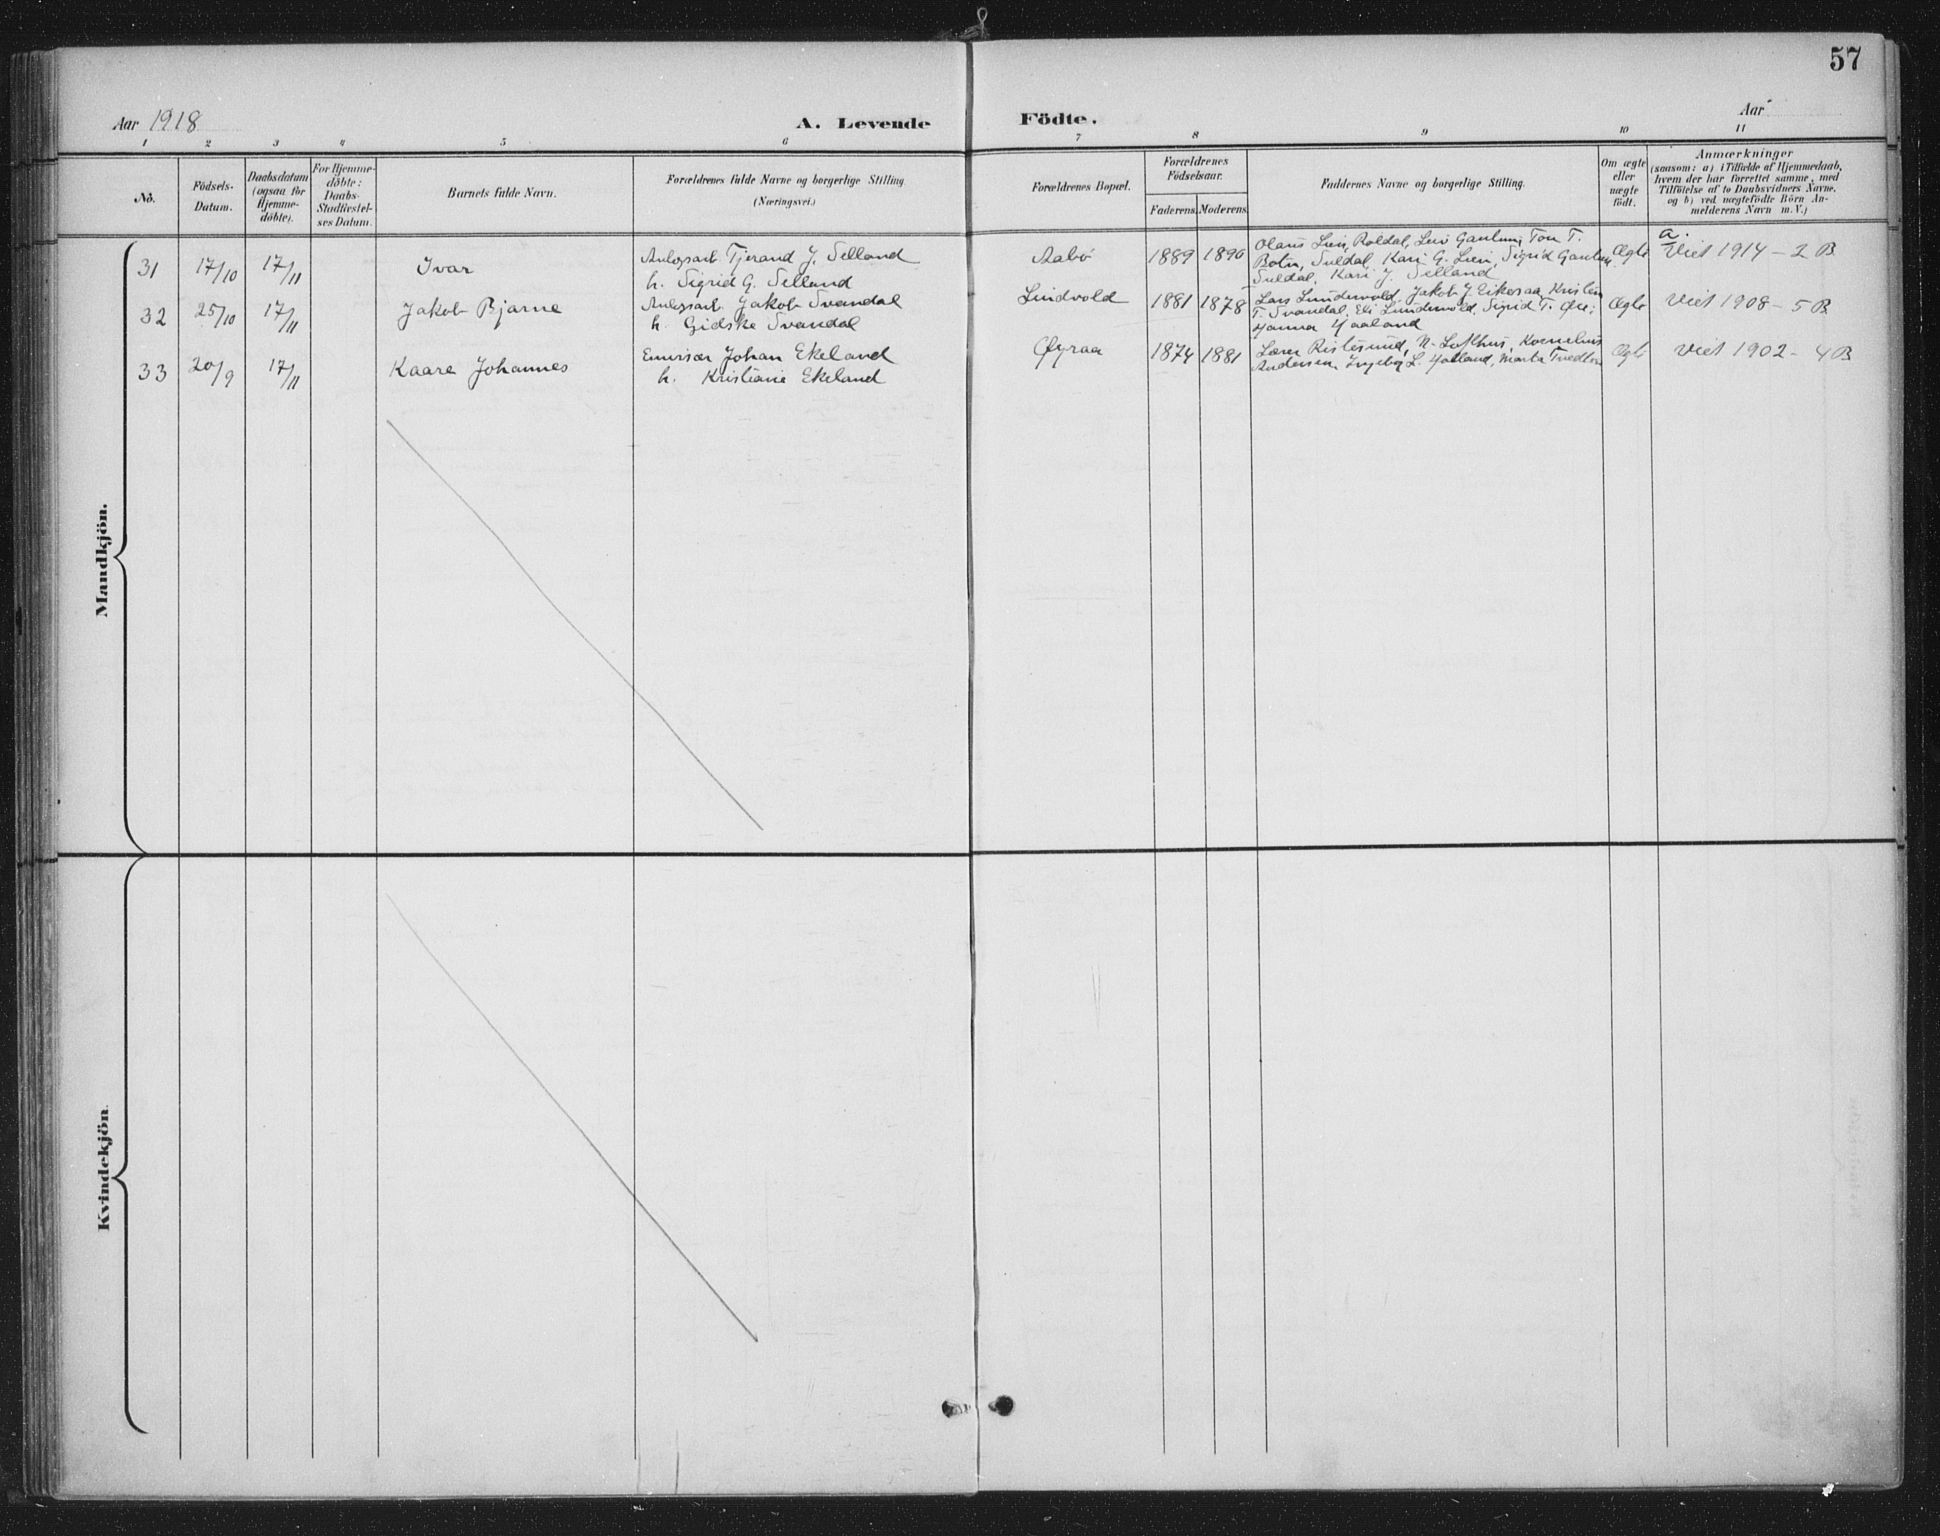 57
Aar 1918
A. Levende
Födte.
Aar
1 2 3 4 5 6 7 8 9 10 11
No.
Födsels-
Datum.
Daabsdatum
(ogsaa for
Hjemme-
döbte).
For Hjemme-
döbte:
Daabs-
Stadfæstel-
ses Datum.
Barnets fulde Navn.
Forældrenes fulde Navne og borgerlige Stilling
(Næringsvei.)
Forældrenes Bopæl.
Forældrenes
Födselsaar.
Faderens.
Moderens.
Faddernes Navne og borgerlige Stilling.
Om ægte
eller
uægte
födt.
Anmærkninger
(saasom: a) i Tilfælde af Hjemmedaab,
hvem der har forrettet samme, med
Tilföielse af to Daabsvidners Navne,
og b) ved uægtefödte Börn An-
melderens Navn m. V.)
Mandkjön.
31 17/10 17/11 Ivar
Anlægsarb. Tjerand J. Selland
h. Sigrid G. Selland
Aabö 1889 1890
Olaus Lien, Roldal, Leiv Gautun, Ton T.
Botn, Suldal, Kari G. Lien, Sigrid Gautun
Suldal, Kari J. Selland
Ægte
a.
Viet 1914 – 2 B
32 25/10 17/11 Jakob Bjarne
Anlægsarb. Jakob Svandal
h. Gidske Svandal
Lindvold 1881 1878
Lars Lunde­vold, Jakob J. Eikesaa, Kristen
T. Svandal, Eli Lundevold, Sigrid T. Öre,
Hanna Haaland
Ægte
Viet 1908 – 5 B
33 20/9 17/11 Kaare Johannes
Emissær Johan Ekeland
h. Kristiane Ekeland
Øyraa 1874 1881
Lærer Ristesund, N. Lofthus, Kornelius
Andersen, Ingeborg L. Holland, Marta Tvedten
Ægte
Viet 1902 – 4 B
Kvindekjön.